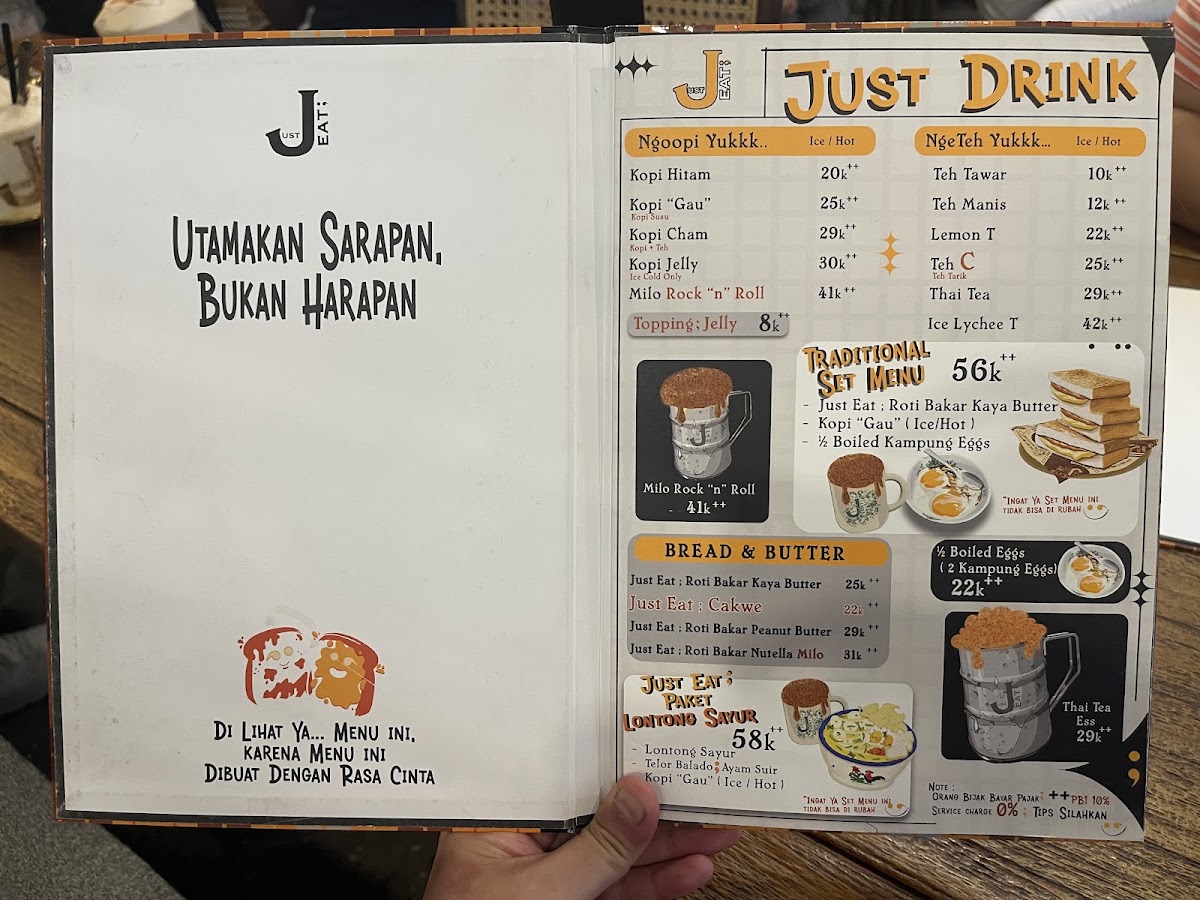 JUST EAT;
UTAMAKAN SARAPAN,
BUKAN HARAPAN
DI LIHAT YA... MENU INI,
KARENA MENU INI
DIBUAT DENGAN RASA CINTA
JUST EAT;
JUST DRINK
Ngoopi Yukkk.. Ice / Hot
Kopi Hitam 20k++
Kopi "Gau" 25k++
Kopi Susu
Kopi Cham 29k++
Kopi + Teh
Kopi Jelly 30k++
Ice Cold Only
Milo Rock "n" Roll 41k++
Topping; Jelly 8k++
NgeTeh Yukkk... Ice / Hot
Teh Tawar 10k++
Teh Manis 12k ++
Lemon T 22k++
Teh C 25k++
Teh Tarik
Thai Tea 29k++
Ice Lychee T 42k++
Milo Rock "n" Roll
- 41k++
TRADITIONAL
SET MENU 56k++
- Just Eat ; Roti Bakar Kaya Butter
- Kopi "Gau" ( Ice/Hot )
- ½ Boiled Kampung Eggs
"INGAT YA SET MENU INI
TIDAK BISA DI RUBAH
BREAD & BUTTER
Just Eat ; Roti Bakar Kaya Butter 25k ++
Just Eat ; Cakwe 22k ++
Just Eat ; Roti Bakar Peanut Butter 29k ++
Just Eat ; Roti Bakar Nutella Milo 31k ++
½ Boiled Eggs
( 2 Kampung Eggs)
22k++
JUST EAT ;
PAKET
LONTONG SAYUR
58k++
- Lontong Sayur
- Telor Balado ; Ayam Suir
- Kopi "Gau" ( Ice / Hot )
"INGAT YA SET MENU INI
TIDAK BISA DI RUBAH
JUST EAT;
Thai Tea
Ess
29k++
NOTE :
ORANG BIJAK BAYAR PAJAK ; ++ PB1 10%
SERVICE CHARGE 0% ; TIPS SILAHKAN